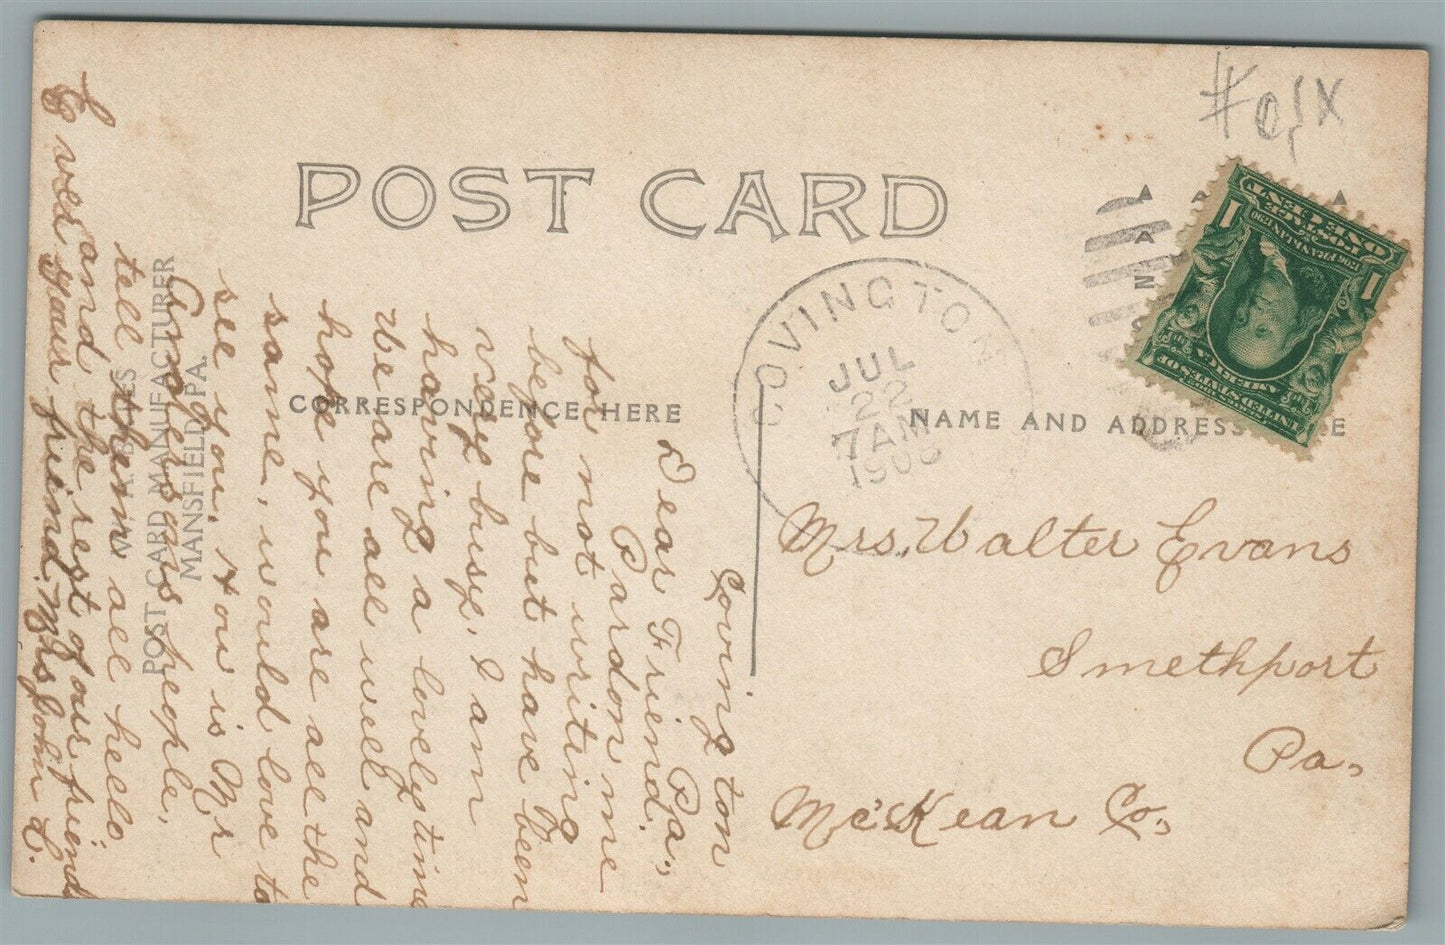 POST CARD
CORRESPONDENCE HERE
NAME AND ADDRESS
COVINGTON
JUL
22
7 AM
POST CARD MANUFACTURER
MANSFIELD, PA.
Covington
Pa.,
Dear Friend.
Pardon me
for not writing
before but have been
very busy. I am
having a lovely time
We are all well and
hope you are all the
same, would love to
see you. How is Mr
people,
tell them all hello
and the rest of our friends
your friend. Mrs John
Mrs. Walter Evans
Smethport
Pa.
McKean Co.,
1 POSTAGE 1
ONE CENT
FRANKLIN
UNITED STATES OF
AMERICA